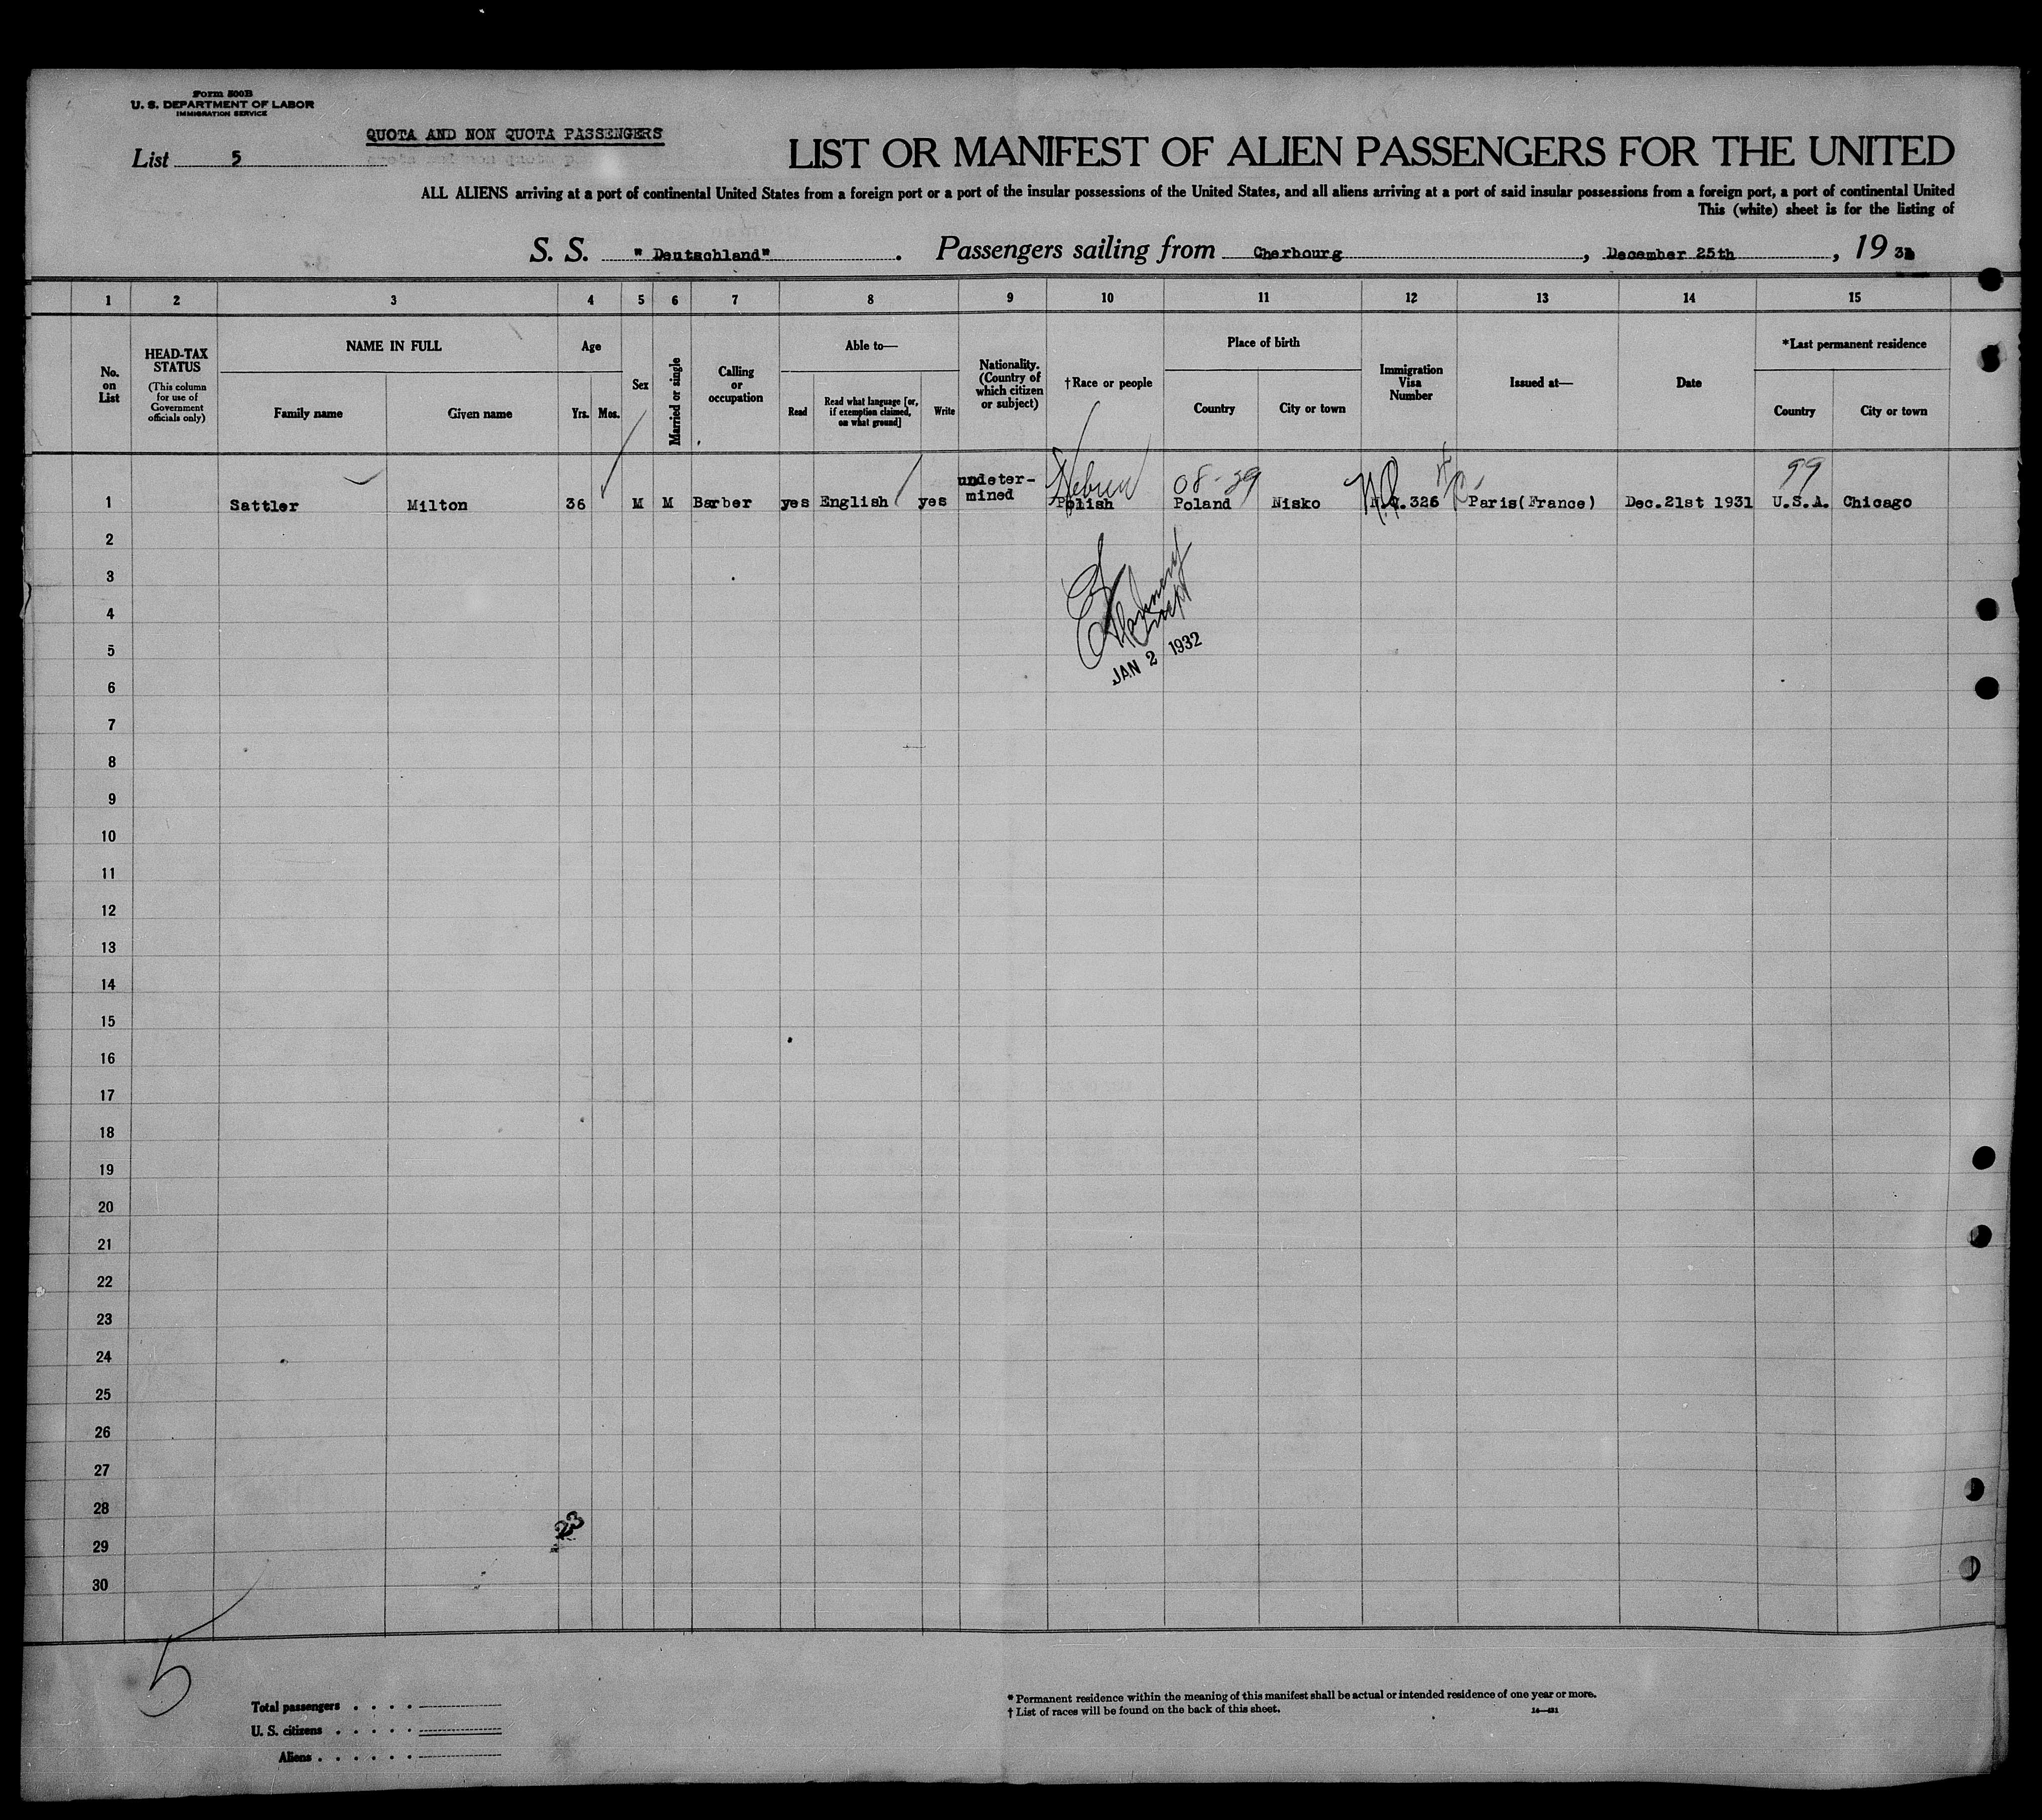 Form 500B
U. S. DEPARTMENT OF LABOR
IMMIGRATION SERVICE
QUOTA AND NON QUOTA PASSENGERS
List 5
LIST OR MANIFEST OF ALIEN PASSENGERS FOR THE UNITED
ALL ALIENS arriving at a port of continental United States from a foreign port or a port of the insular possessions of the United States, and all aliens arriving at a port of said insular possessions from a foreign port, a port of continental United
This (white) sheet is for the listing of
S. S. "Deutschland". Passengers sailing from Cherbourg, December 25th, 19 3
1 2 3 4 5 6 7 8 9 10 11 12 13 14 15
No. on List
HEAD-TAX STATUS
(This column for use of Government officials only)
NAME IN FULL
Family name Given name
Age
Yrs. Mos.
Sex
Married or single
Calling or occupation
Able to—
Read
Read what language [or, if exemption claimed, on what ground]
Write
Nationality. (Country of which citizen or subject)
†Race or people
Place of birth
Country City or town
Immigration Visa Number
Issued at—
Date
*Last permanent residence
Country City or town
Hebrew 08-29 99
1 Sattler Milton 36 M M Barber yes English yes undeter-mined Polish Poland Nisko 326 Paris(France) Dec.21st 1931 U.S.A. Chicago
2
3
4
5
JAN 2 1932
6
7
8
9
10
11
12
13
14
15
16
17
18
19
20
21
22
23
24
25
26
27
28
23
29
30
5
Total passengers
U. S. citizens
Aliens
* Permanent residence within the meaning of this manifest shall be actual or intended residence of one year or more.
† List of races will be found on the back of this sheet.